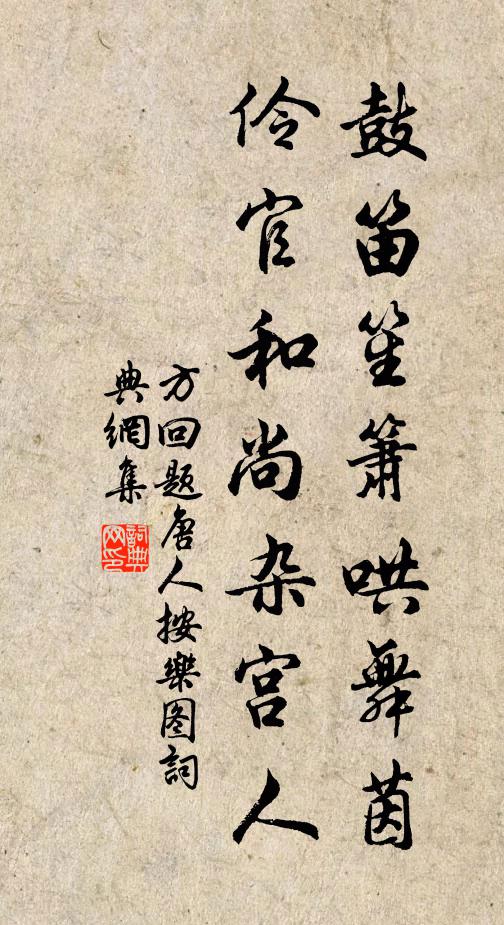 鼓笛笙箫哄舞茵
伶官和尚杂宫人
方回题唐人按樂图詞
典網集
詞典网印